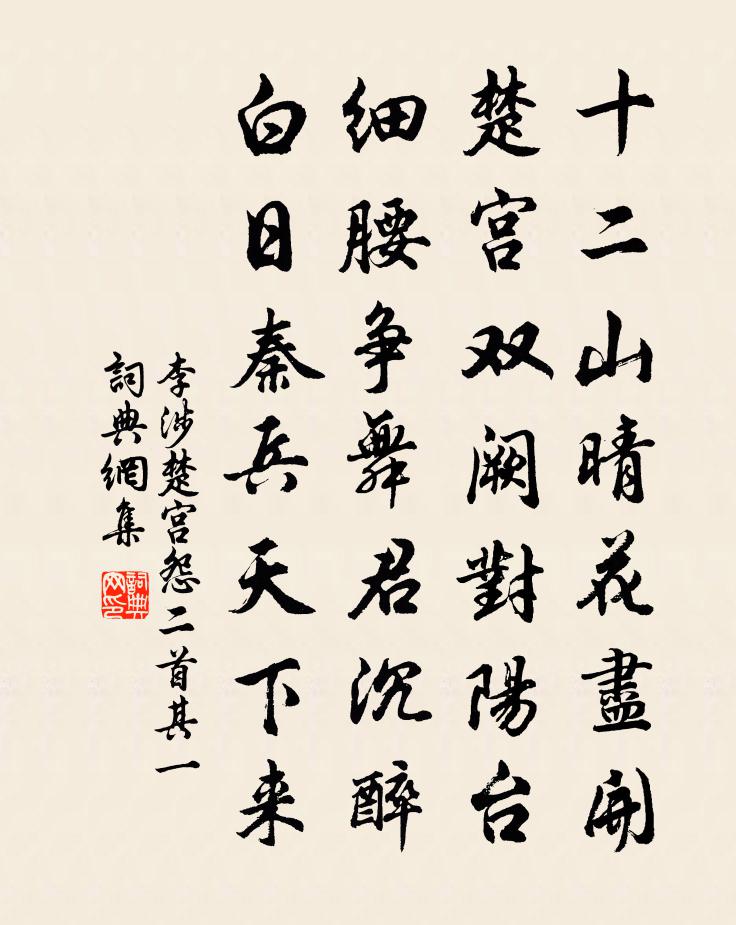 十二山晴花盡開
楚宮双阙對陽台
细腰争舞君沉醉
白日秦兵天下来
李涉楚宮怨二首其一
詞典網集
詞典网印